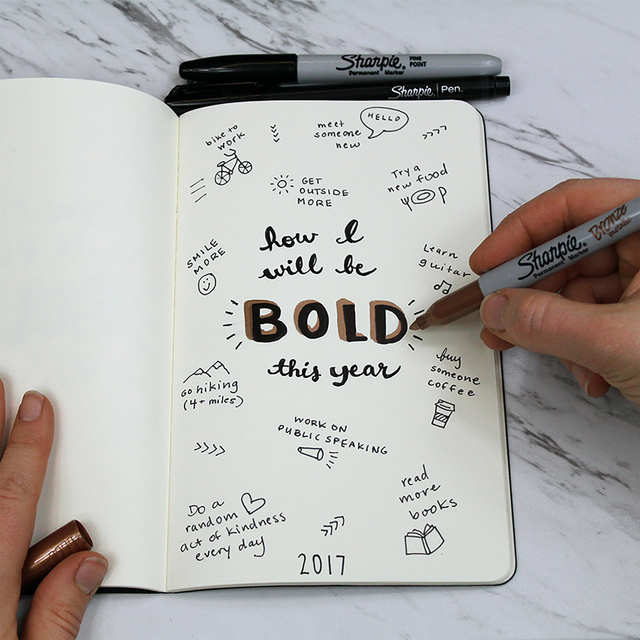 Sharpie. FINE POINT
Permanent Marker
Sharpie Pen.
bike to
work
meet
someone
new
HELLO
GET
OUTSIDE
MORE
Try a
new food
SMILE
MORE
how I
will be
BOLD
this year
Learn
guitar
Sharpie Bronze
Permanent Marker
go hiking
(4+ miles)
buy
someone
coffee
WORK ON
PUBLIC SPEAKING
Do a
random
act of kindness
every day
read
more
books
2017